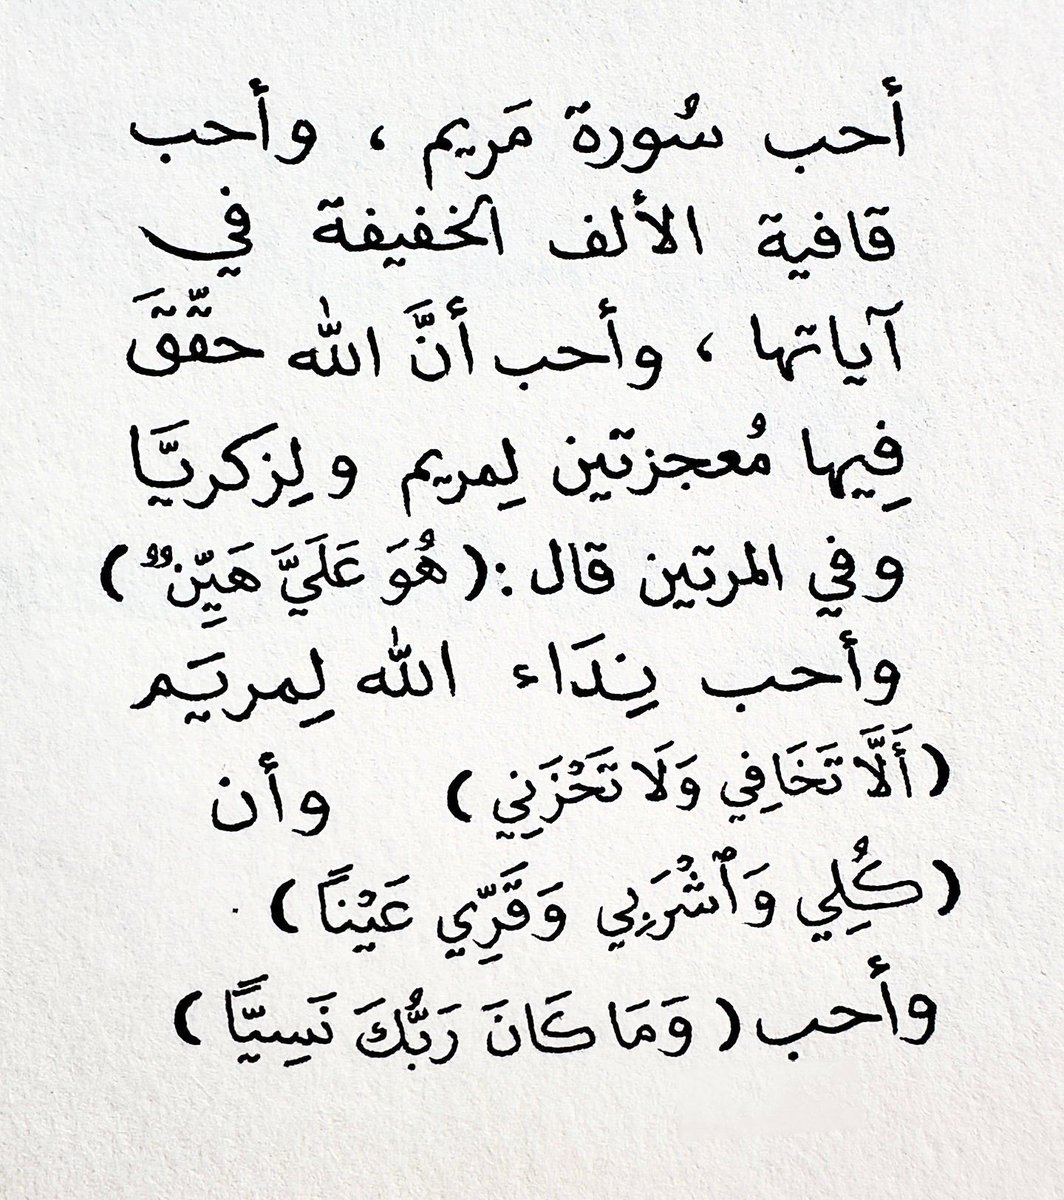 أحب سُورة مَريم ، وأحب
قافية الألف الخفيفة في
آياتها ، وأحب أنَّ الله حقّقَ
فِيها مُعجزتين لِمريم ولِزكريَّا
وفي المرتين قال : ( هُوَ عَلَيَّ هَيِّنٌ )
وأحب نِدَاء الله لِمريَم
( أَلَّا تَخَافِي وَلَا تَحْزَنِي ) وأن
( كُلِي وَٱشْرَبِي وَقَرِّي عَيْنًا )
وأحب ( وَمَا كَانَ رَبُّكَ نَسِيًّا )